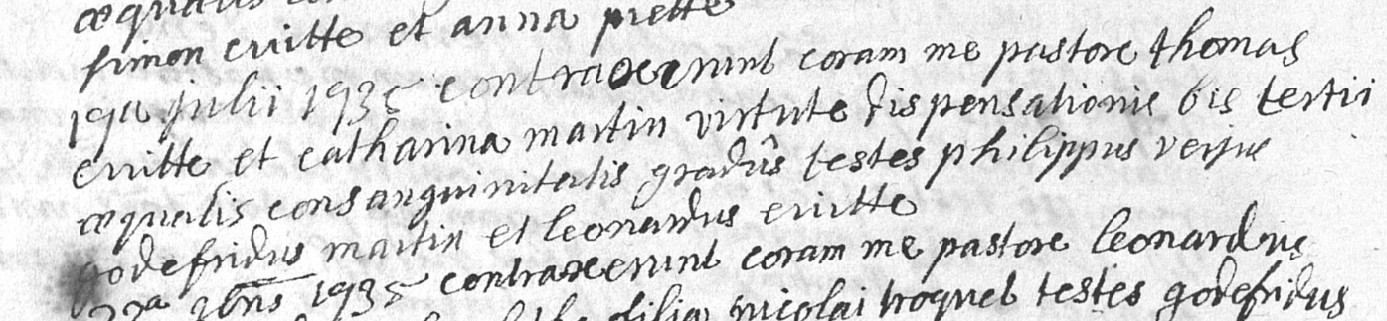 æqualis
simon crutte et anna piette
19a Julii 1735 contraxerunt coram me pastore thomas
crutte et catharina martin virtute dispensationis bis tertii
æqualis consanguinitatis gradûs testes philippus
godefridus martin et leonardus crutte
22a 1735 contraxerunt coram me pastore leonardus
filia nicolai testes godefridus